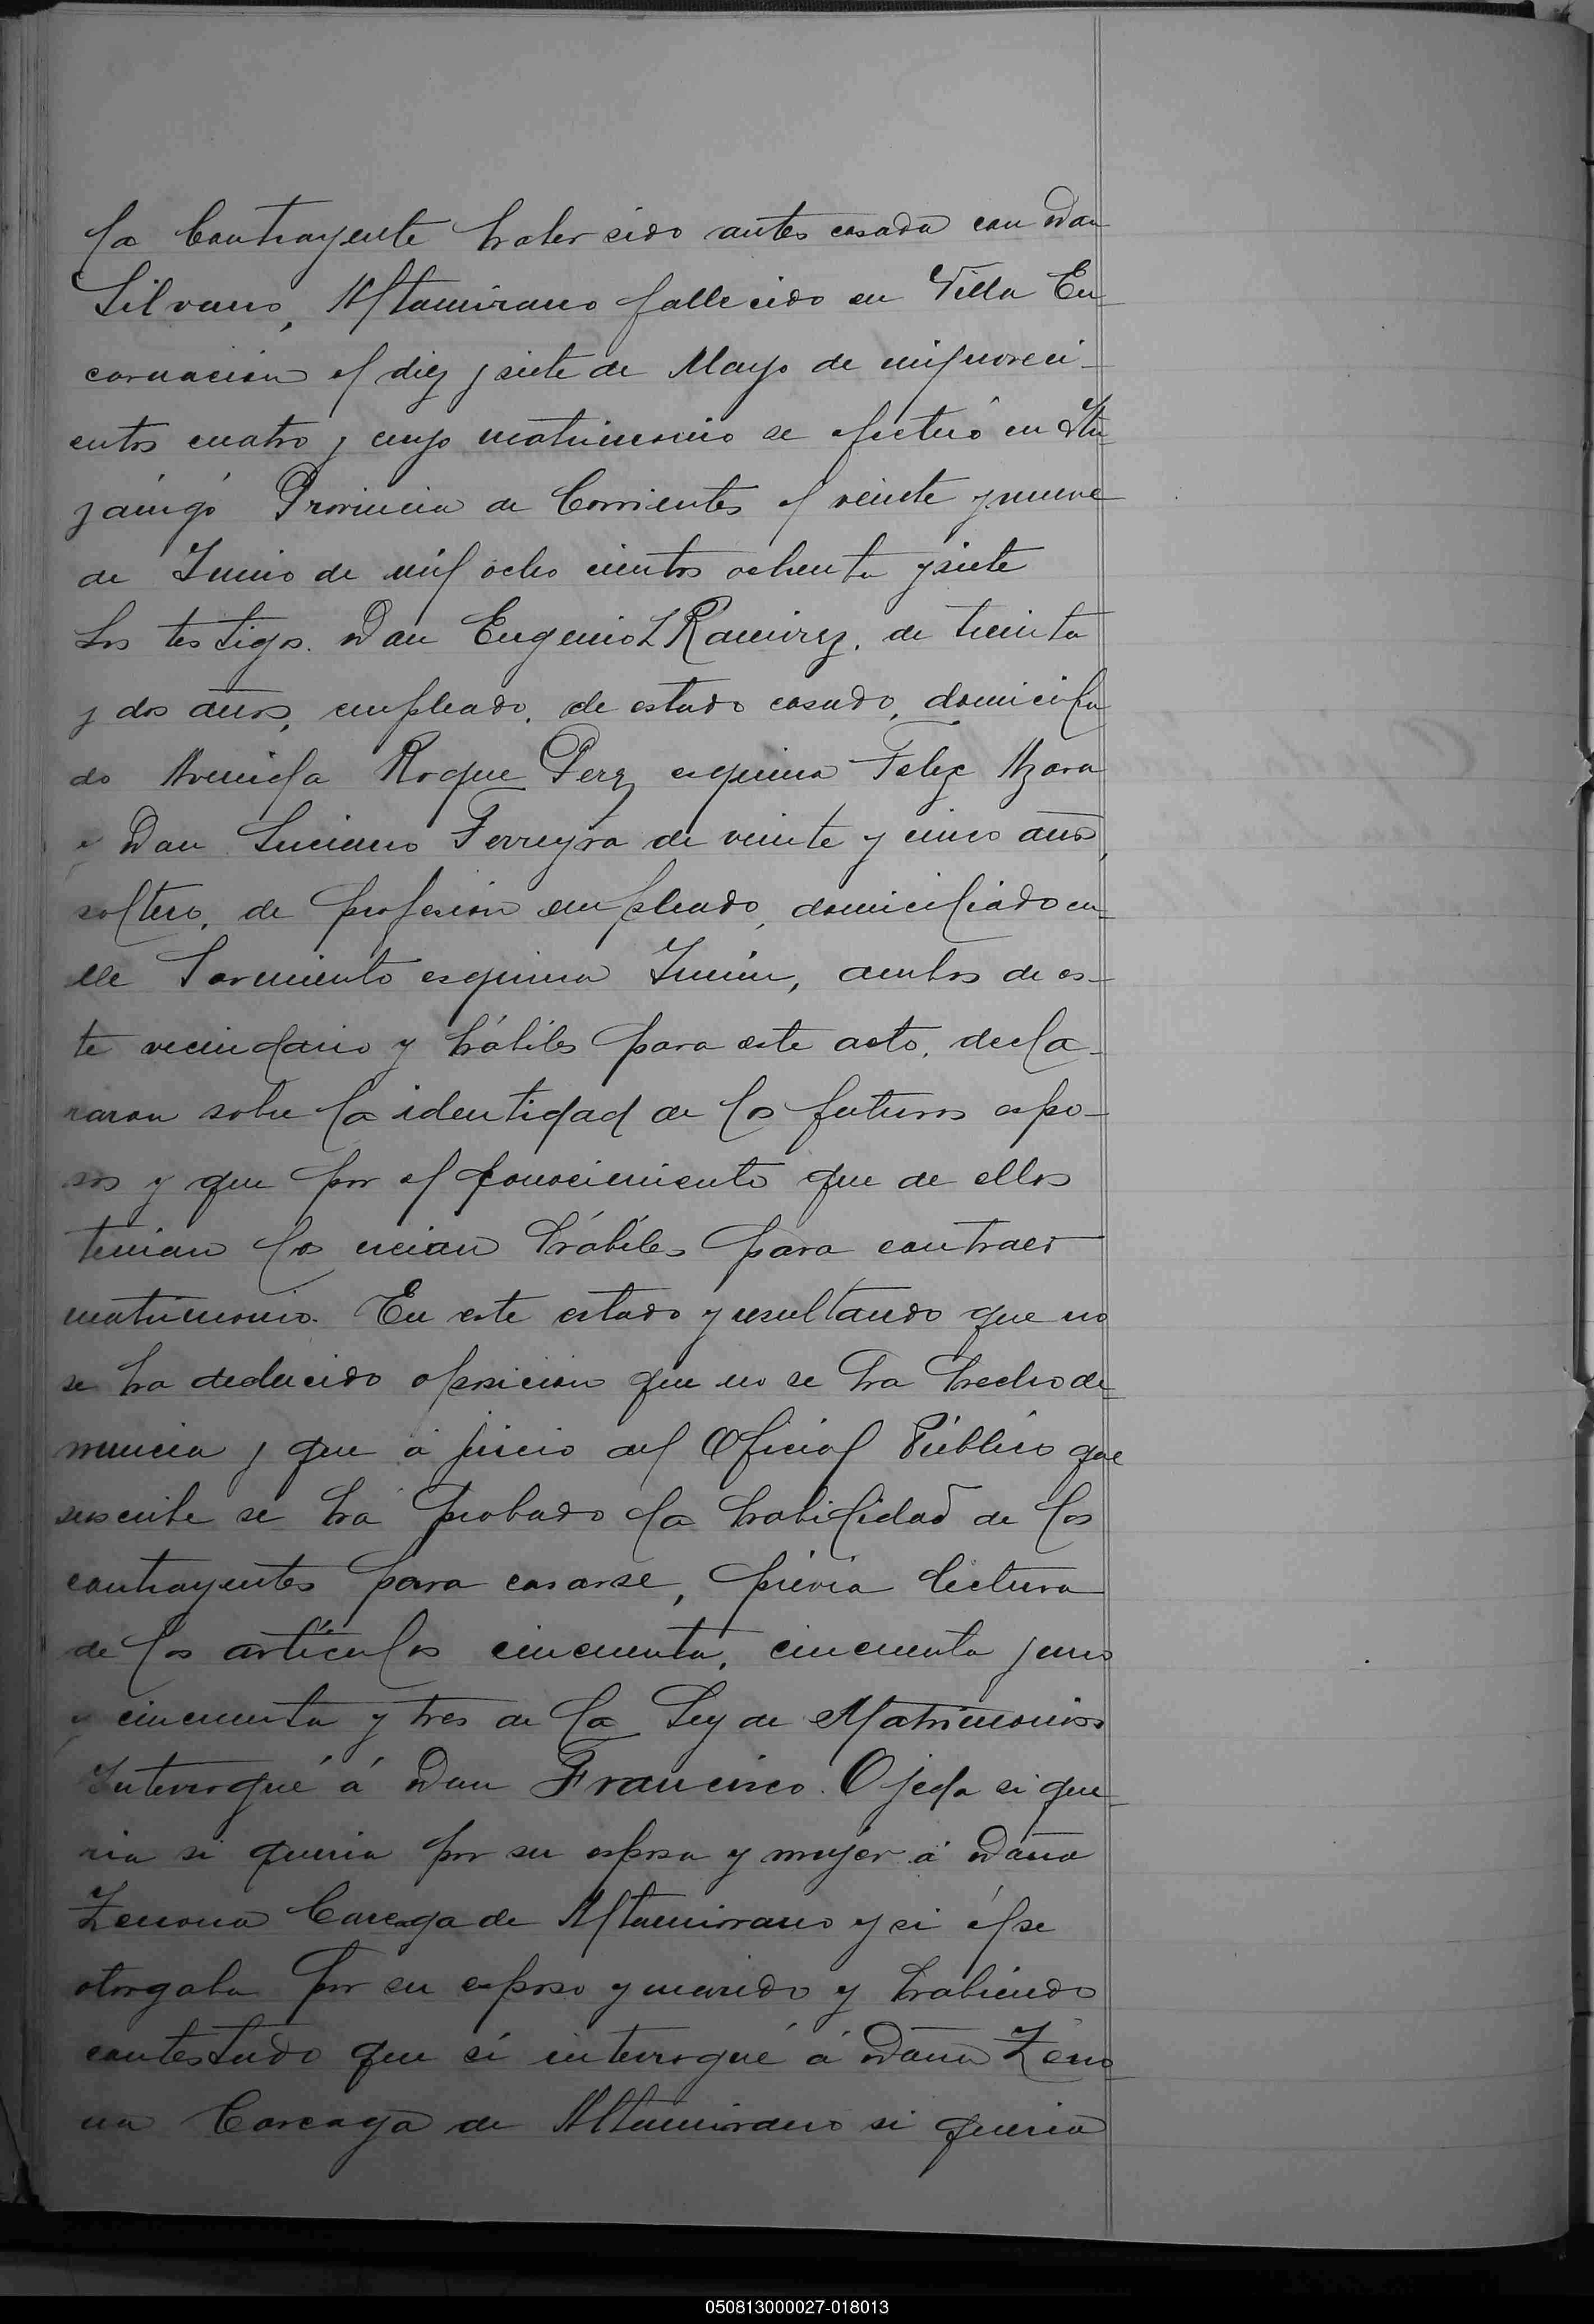 la Contrayente haber sido antes casada con Don
Silvano, Altamirano fallecido en Villa En
carnacion el diez y siete de Mayo de mil noveci-
entos cuatro y cuyo matrimonio se efectuó en Itu
záingó Provincia de Corrientes el veinte y nueve
de Junio de mil ocho cientos ochenta y siete
Los testigos. Don Eugenio L Ramirez. de treinta
y dos años, empleado, de estado casado, domicilia
do Avenida Roque Perez esquina Felix Azara
y Don Luciano Ferreyra de veinte y cinco años,
soltero, de profesión empleado, domiciliado ca-
lle Sarmiento esquina Junin, ambos de es-
te vecindario y hábiles para este acto, decla-
raron sobre la identidad de los futuros espo-
sos y que por el conocimiento que de ellos
tenian los creian hábiles para contraer
matrimonio. En este estado y resultando que no
se ha deducido oposicion que no se ha hecho de-
nuncia y que á juicio del Oficial Público que
suscribe se há probado la habilidad de los
contrayentes para casarse, prévia lectura
de los artículos cincuenta, cincuenta y uno
y cincuenta y tres de la Ley de Matrimonios
Interrogué á Don Francisco Ojeda si que-
ria si queria por su esposa y mujer á Doña
Zenona Careaga de Altamirano y si él se
otorgaba por su esposo y marido y habiendo
contestado que sí interrogué á Doña Zeno
na Careaga de Altamirano si queria
050813000027-018013